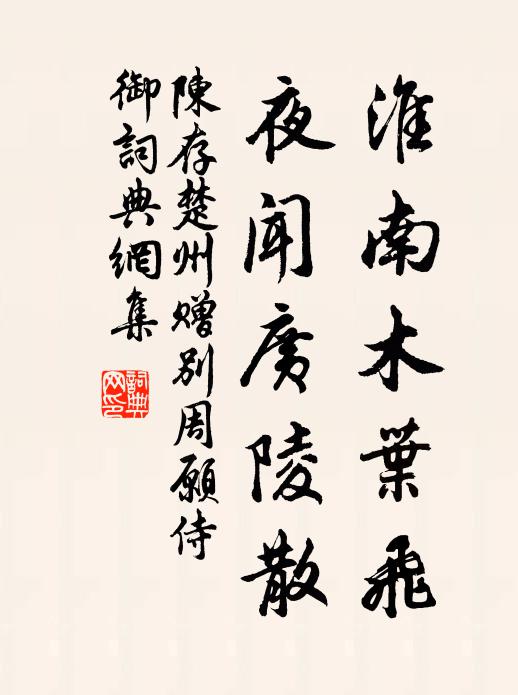 淮南木葉飛
夜聞廣陵散
陳存楚州贈別周願侍
御詞典網集
詞典
网印